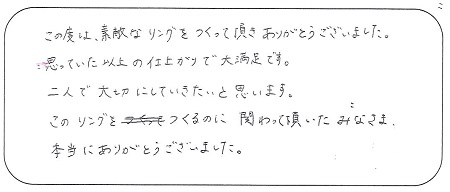 この度は、素敵なリングをつくって頂きありがとうございました。
思っていた以上の仕上がりで大満足です。
二人で大切にしていきたいと思います。
このリングをつくるのに関わって頂いたみなさま、
本当にありがとうございました。